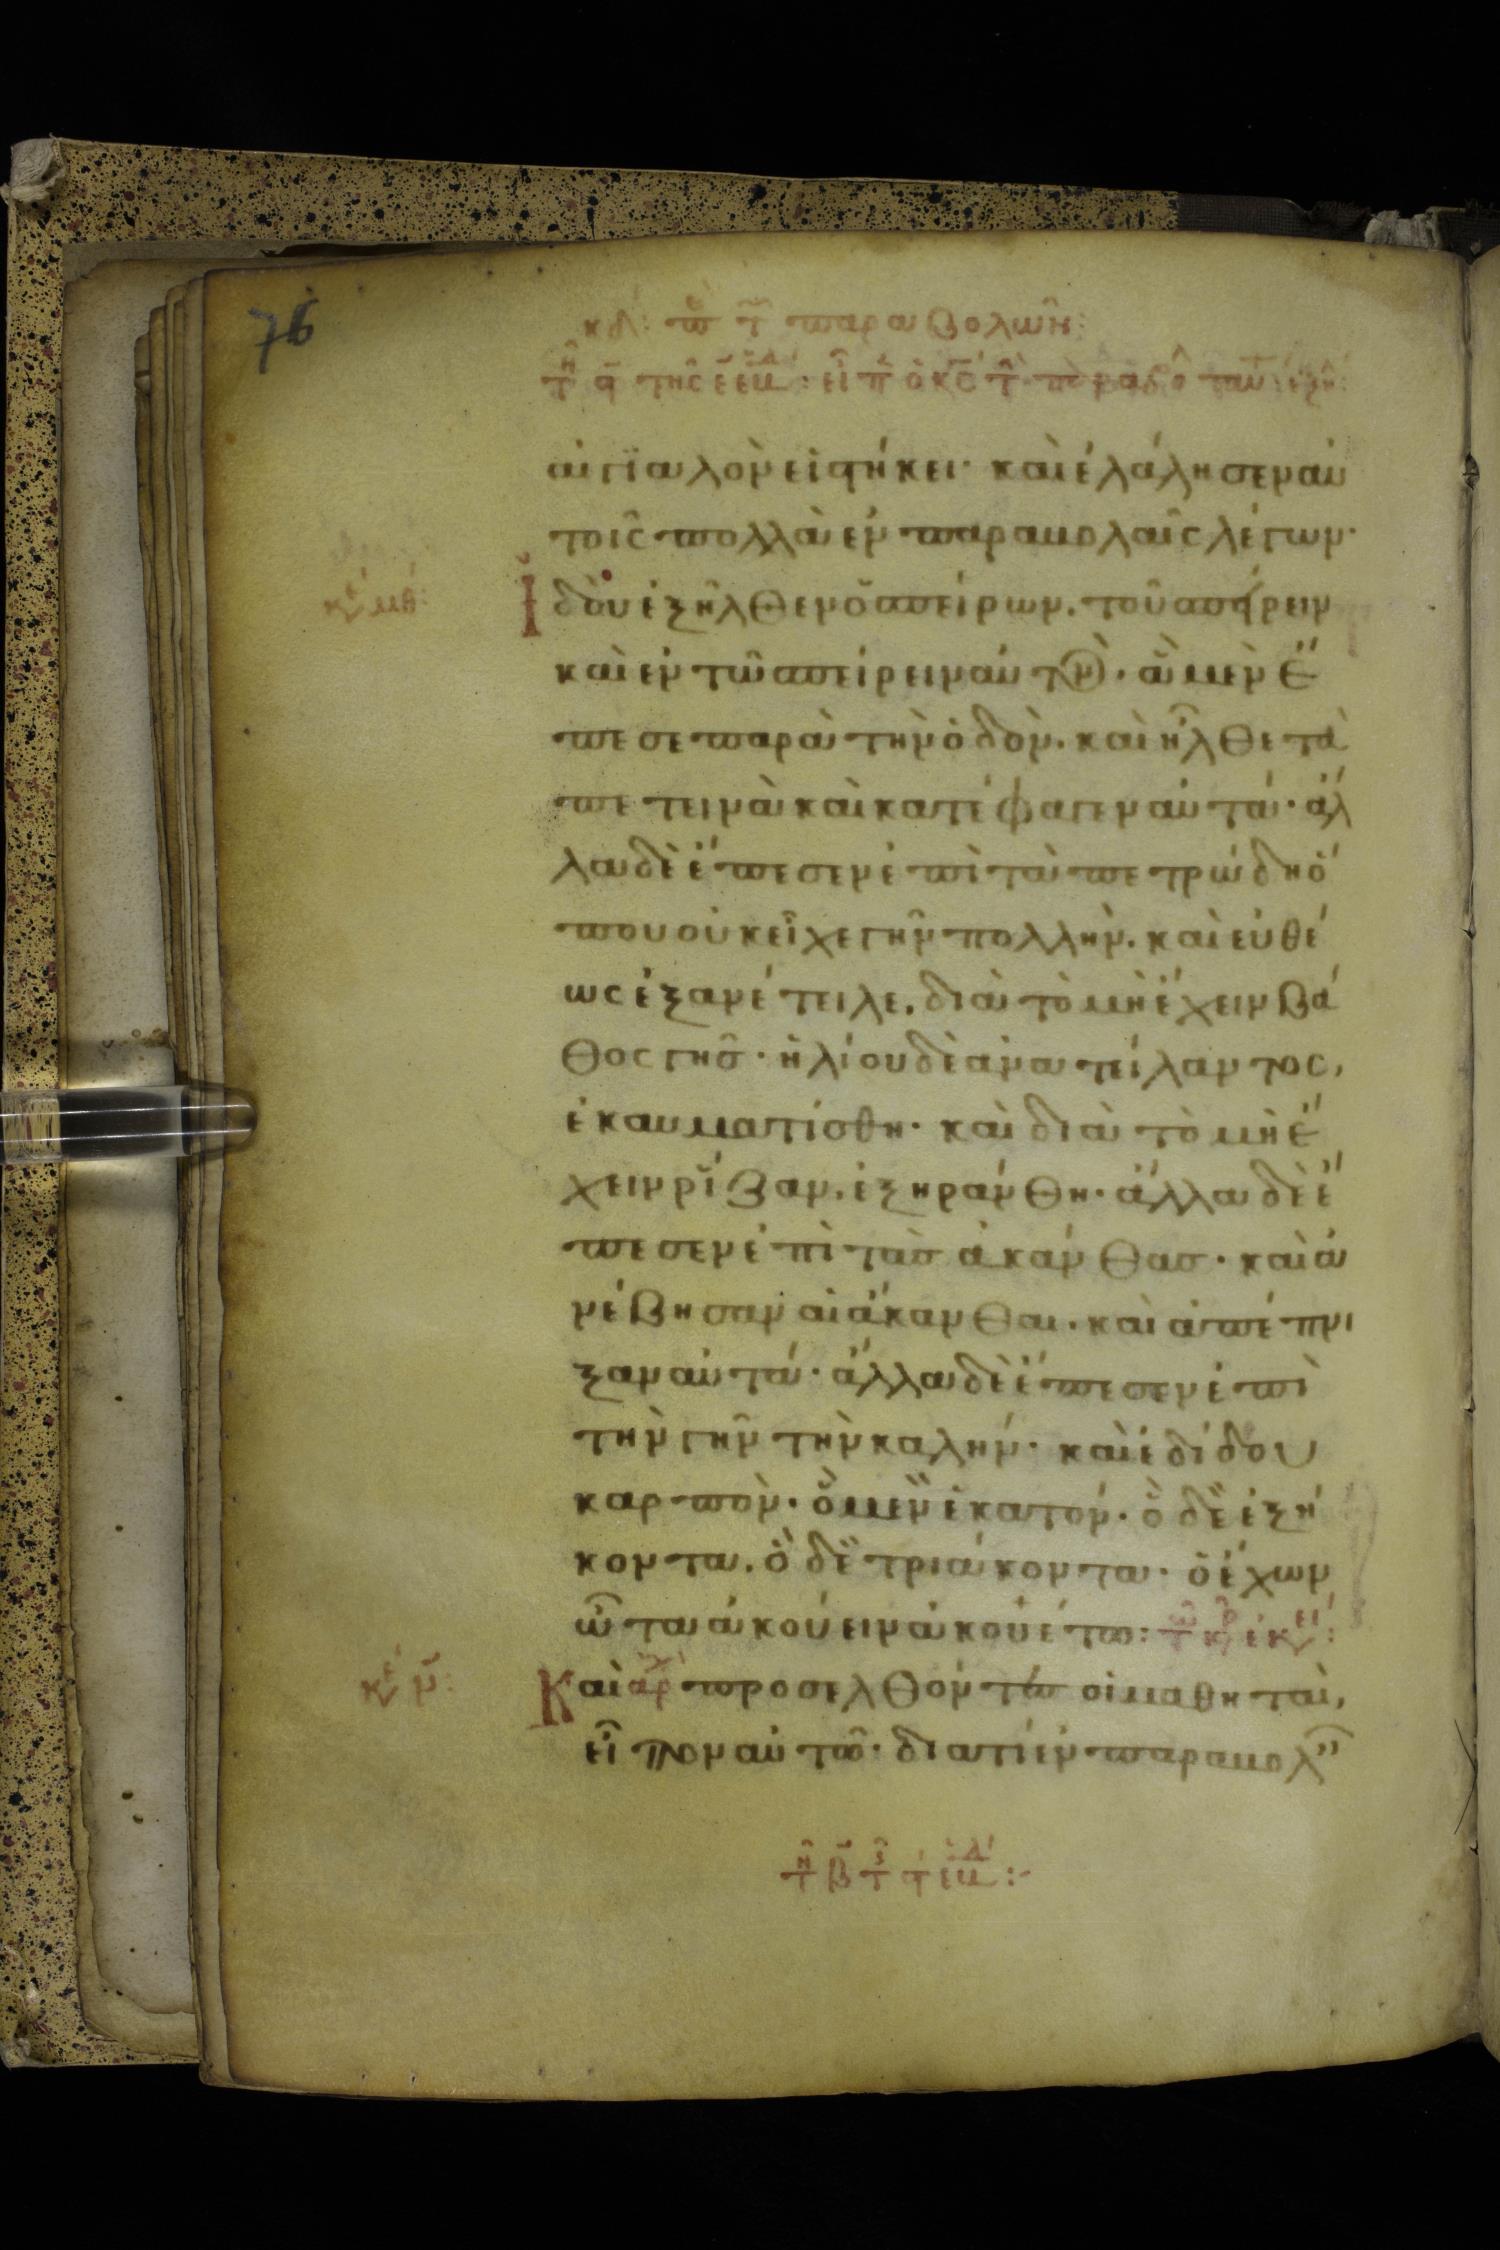 76
κδ: πε τ παραβολῶν:
αἰγϊαλὸν εἱστήκει· καὶ ἐλάλησεν αὐ
τοῖς πολλὰ ἐν παραβολαῖς λέγων·
Ἰδοὺ ἐξῆλθεν ὁ σπείρων. τοῦ σπείρειν
καὶ ἐν τῶ σπείρειν αὐτὸν· ἃ μὲν ἔ
πεσε παρὰ τὴν ὁδὸν. καὶ ἦλθε τὰ
πετεινὰ καὶ κατέφαγεν αὐτά· ἄλ
λα δὲ ἔπεσεν ἐπὶ τὰ πετρώδη ὅ
που οὐκ εἶχε γῆν πολλὴν. καὶ εὐθέ
ως ἐξανέτειλε. διὰ τὸ μὴ ἔχειν βά
θος γῆς· ἡλίου δὲ ἀνατείλαντος,
ἐκαυματίσθη· καὶ διὰ τὸ μὴ ἔ
χειν ρίζαν. ἐξηράνθη· ἄλλα δὲ ἔ
πεσεν ἐπὶ τὰς ἀκάνθας· καὶ ἀ
νέβησαν αἱ ἄκανθαι. καὶ ἀπέπνι
ξαν αὐτά· ἄλλα δὲ ἔπεσεν ἐπὶ
τὴν γῆν τὴν καλήν· καὶ ἐδίδου
καρπὸν· ὃ μὲν ἑκατόν· ὃ δὲ ἑξή
κοντα. ὃ δὲ τριάκοντα· ὁ ἔχων
ὦτα ἀκούειν ἀκουέτω:
Καὶ προσελθόντες οἱ μαθηταὶ,
εἶπον αὐτῶ· διατί ἐν παραβολ